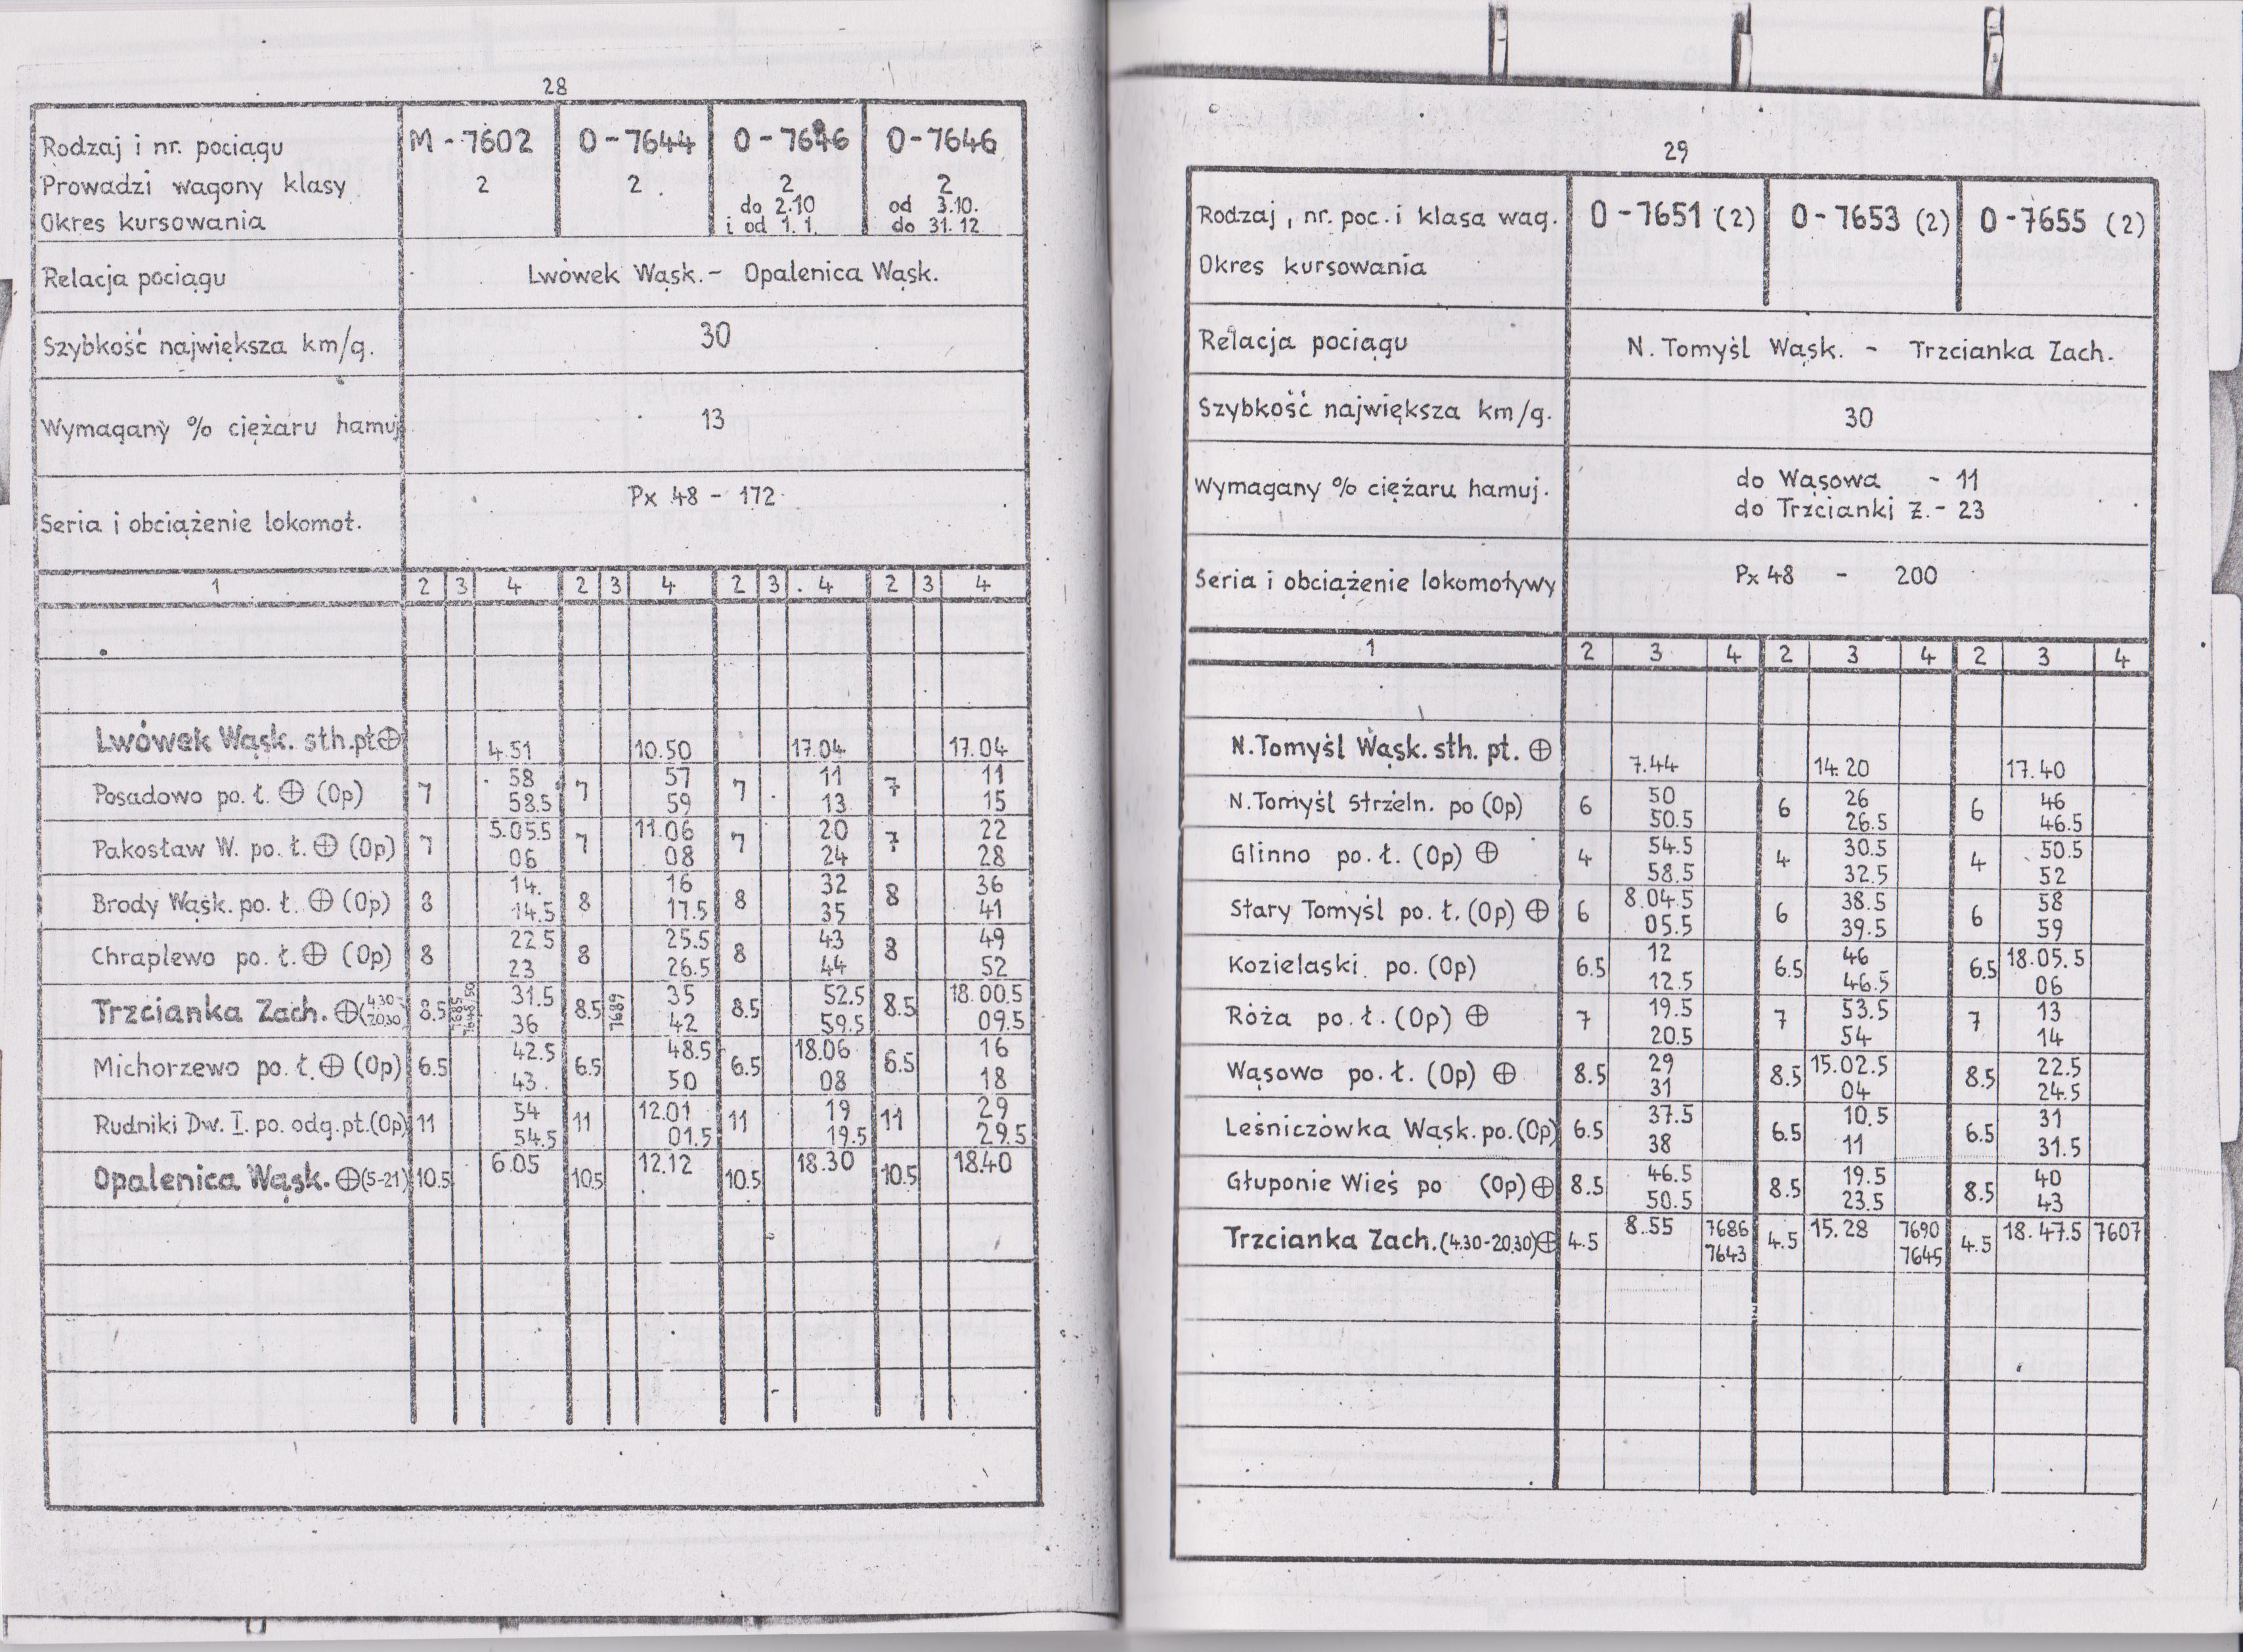 28
Rodzaj i nr. pociągu M-7602 O-7644 O-7646 O-7646
Prowadzi wagony klasy 2 2 2 2
Okres kursowania do 2.10 i od 1.1. od 3.10. do 31.12
Relacja pociągu Lwówek Wąsk. - Opalenica Wąsk.
Szybkość największa km/g. 30
Wymagany % ciężaru hamuj 13
Seria i obciążenie lokomot. Px 48 - 172
1 2 3 4 2 3 4 2 3 4 2 3 4
Lwówek Wąsk. sth.pt ⊕ 4.51 10.50 17.04 17.04
58 57 11 11
Posadowo po. ł. ⊕ (Op) 7 7 7 7
58.5 59 13 15
5.05.5 11.06 20 22
Pakosław W. po. ł. ⊕ (Op) 7 7 7 7
06 08 24 28
14. 16 32 36
Brody Wąsk. po. ł. ⊕ (Op) 8 8 8 8
14.5 17.5 35 41
22.5 25.5 43 49
Chraplewo po. ł. ⊕ (Op) 8 8 8 8
23 26.5 44 52
31.5 35 52.5 18.00.5
Trzcianka Zach. ⊕ (4.30-20.30) 8.5 7685 7648/50 8.5 7689 8.5 8.5
36 42 59.5 09.5
42.5 48.5 18.06 16
Michorzewo po. ł. ⊕ (Op) 6.5 6.5 6.5 6.5
43. 50 08 18
54 12.01 19 29
Rudniki Dw. I. po. odg. pt. (Op) 11 11 11 11
54.5 01.5 19.5 29.5
6.05 12.12 18.30 18.40
Opalenica Wąsk. ⊕ (5-21) 10.5 10.5 10.5 10.5
29
Rodzaj, nr. poc. i klasa wag. O-7651 (2) O-7653 (2) O-7655 (2)
Okres kursowania
Relacja pociągu N. Tomyśl Wąsk. - Trzcianka Zach.
Szybkość największa km/g. 30
Wymagany % ciężaru hamuj. do Wąsowa - 11
do Trzcianki Z. - 23
Seria i obciążenie lokomotywy Px 48 - 200
1 2 3 4 2 3 4 2 3 4
N. Tomyśl Wąsk. sth. pt. ⊕ 7.44 14.20 17.40
50 26 46
N. Tomyśl Strzeln. po (Op) 6 6 6
50.5 26.5 46.5
54.5 30.5 50.5
Glinno po. ł. (Op) ⊕ 4 4 4
58.5 32.5 52
8.04.5 38.5 58
Stary Tomyśl po. ł. (Op) ⊕ 6 6 6
05.5 39.5 59
12 46 18.05.5
Kozielaski po. (Op) 6.5 6.5 6.5
12.5 46.5 06
19.5 53.5 13
Róża po. ł. (Op) ⊕ 7 7 7
20.5 54 14
29 15.02.5 22.5
Wąsowo po. ł. (Op) ⊕ 8.5 8.5 8.5
31 04 24.5
37.5 10.5 31
Leśniczówka Wąsk. po. (Op) 6.5 6.5 6.5
38 11 31.5
46.5 19.5 40
Głuponie Wieś po (Op) ⊕ 8.5 8.5 8.5
50.5 23.5 43
8.55 7686 15.28 7690 18.47.5 7607
Trzcianka Zach. (4.30-20.30) ⊕ 4.5 4.5 4.5
7643 7645